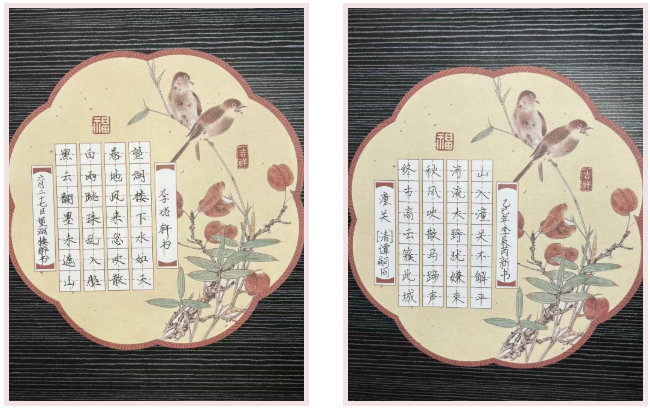 六月二十七日望湖楼醉书
黑云翻墨未遮山
白雨跳珠乱入船
卷地风来忽吹散
望湖楼下水如天
李 轩书
福
吉祥
潼关 [清]谭嗣同
终古高云簇此城
秋风吹散马蹄声
河流大野犹嫌束
山入潼关不解平
乙巳年李 书
福
吉祥